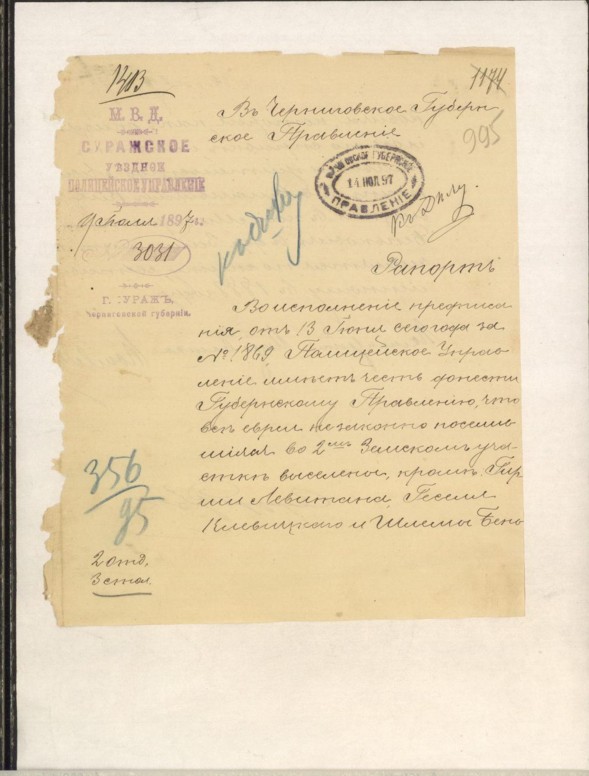 1403
1174
995
М. В. Д.
СУРАЖСКОЕ
УѢЗДНОЕ
ПОЛИЦЕЙСКОЕ УПРАВЛЕНІЕ
9 Іюля 1897 г.
3031
Г. СУРАЖЪ,
Черниговской губерніи.
Въ Черниговское Губерн
ское Правленіе
ГУБЕРНСКОЕ
14 ІЮЛ. 97
ПРАВЛЕНІЕ
Къ Дѣлу.
Рапортъ
Во исполненіе предписа
нія, отъ 13 Іюня сего года за
№ 1869 Полицейское Управ
леніе имѣетъ честь донести
Губернскому Правленію, что
всѣ евреи незаконно поселив
шіяся во 2мъ Земскомъ уча
сткѣ выселены, кромѣ, Гир
ши Левитана, Геселя
Клевицкаго и Шлемы Бень
356
95
2 отд.
3 стол.